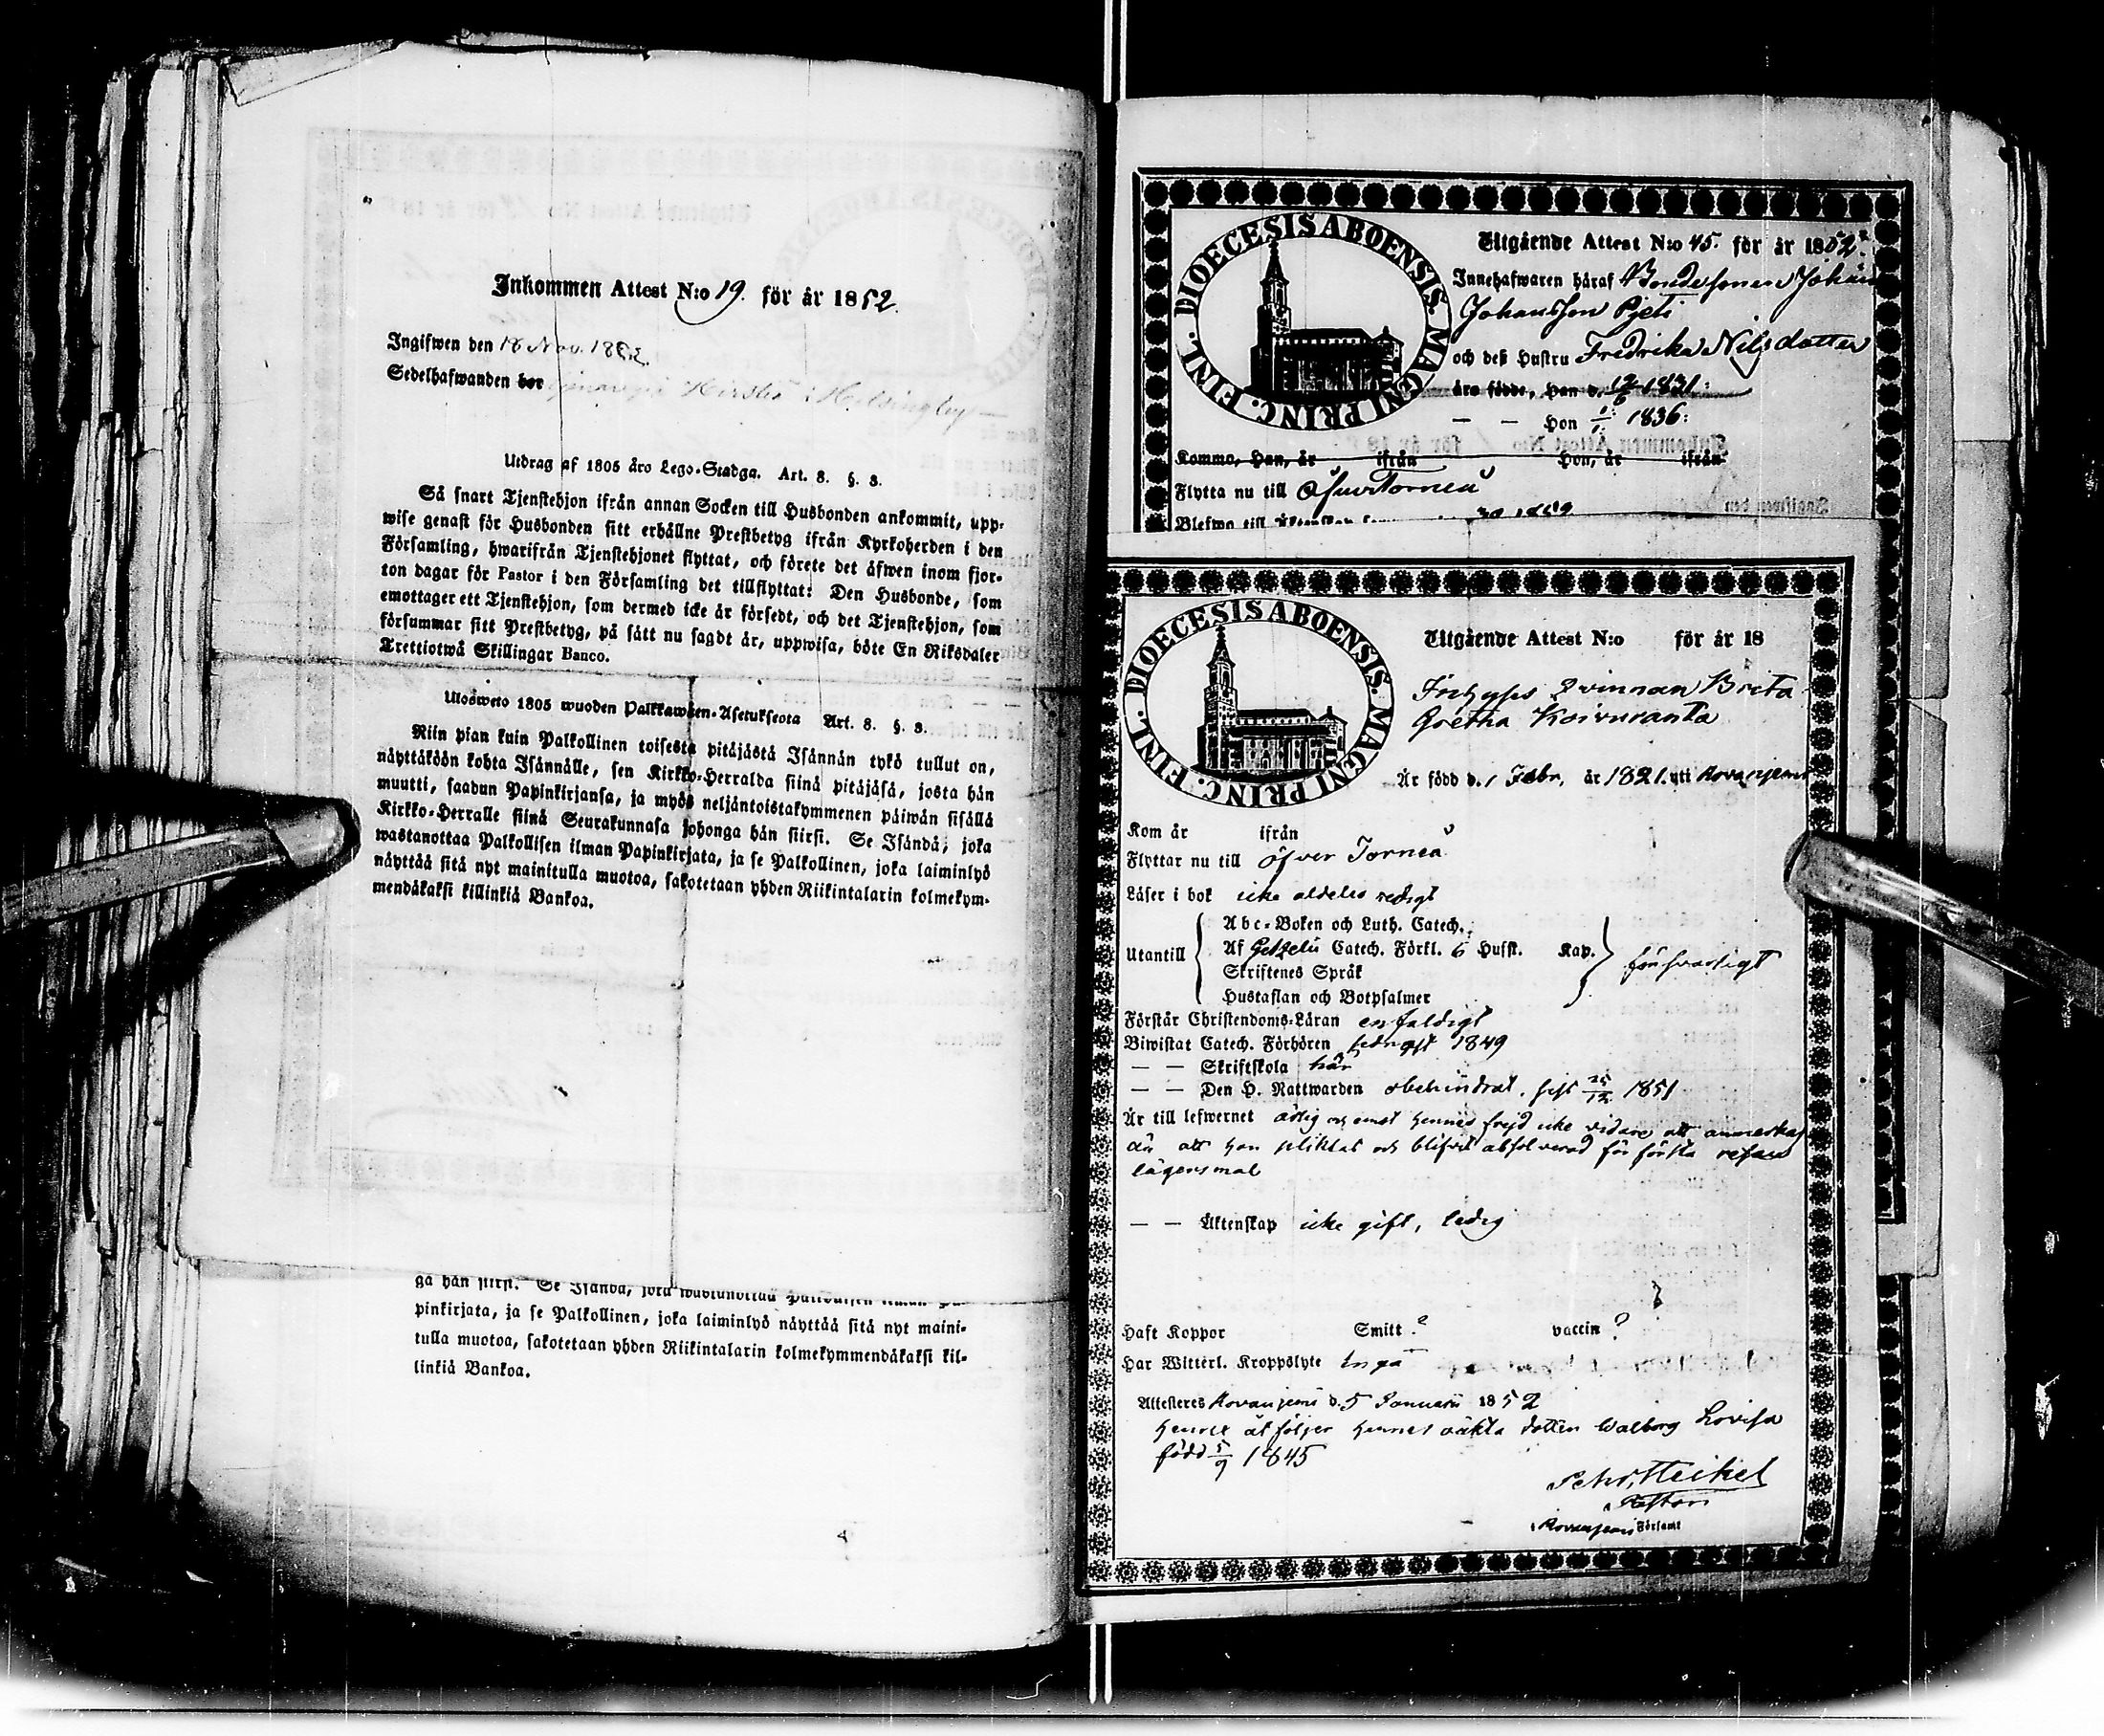 Inkommen Attest N:o 19. för år 1852.
Ingifwen den 18 Nov. 1852
Sedelhafwanden bor
Utdrag af 1805 års Lego-Stadga. Art. 8. §. 3.
Så snart Tjenstehjon ifrån annan Socken till Husbonden ankommit, upp-
wise genast för Husbonden sitt erhållne Prestbetyg ifrån Kyrkoherden i den
Församling, hwarifrån Tjenstehjonet flyttat, och förete det äfwen inom fjor-
ton dagar för Pastor i den Församling det tillflyttat: Den Husbonde, som
emottager ett Tjenstehjon, som dermed icke är försedt, och det Tjenstehjon, som
försummar sitt Prestbetyg, på sätt nu sagdt är, uppwisa, böte En Riksdaler
Trettiotwå Skillingar Banco.
Ulosweto 1805 wuoden Palkkawäen-Asetuksesta Art. 8. §. 3.
Niin pian kuin Palkollinen toisesta pitäjästä Isännän tykö tullut on,
näyttäköön kohta Isännälle, sen Kirkko-Herralda siinä pitäjäsä, josta hän
muutti, saadun Papinkirjansa, ja myös neljäntoistakymmenen päiwän sisällä
Kirkko-Herralle siinä Seurakunnasa johonga hän siirsi. Se Isändä, joka
wastanottaa Palkollisen ilman Papinkirjata, ja se Palkollinen, joka laiminlyö
näyttää sitä nyt mainitulla muotoa, sakotetaan yhden Riikintalarin kolmekym-
mendäkaksi killinkiä Bankoa.
ga hän siirsi. Se Isändä, joka wastanottaa
pinkirjata, ja se Palkollinen, joka laiminlyö näyttää sitä nyt maini-
tulla muotoa, sakotetaan yhden Riikintalarin kolmekymmendäkaksi kil-
linkiä Bankoa.
DIOECESIS ABOENSIS. MAGNI PRINC. FINL.
Utgående Attest N:o 45. för år 1852.
Innehafwaren häraf Bondesonen Johan
Johansson Pjeti
och deß Hustru Fredrika Nilsdotter
äro födde, Han d. 12/6 1831.
— — Hon 1/1 1836:
Kommo, Han, år ifrån Hon, år ifrån
Flytta nu till Öfver Torneå
DIOECESIS ABOENSIS. MAGNI PRINC. FINL.
Utgående Attest N:o för år 18
Inhyses Qvinnan Brita
Gretha Koivuranta
Är född d. 1 Febr. år 1821. uti Rovanjemi
Kom år ifrån
Flyttar nu till Öfver Torneå
Läser i bok icke aldeles redigt
Abc-Boken och Luth. Catech.
Utantill Af Gezelii Catech. Förkl. 6 Hufst. Kap. försvarligt
Skriftenes Språk
Hustaflan och Botpsalmer
Förstår Christendoms-Läran enfaldigt
Biwistat Catech. Förhören sednast 1849
— — Skriftskola här
— — Den H. Nattwarden obehindrat. sist 25/12 1851
Är till lefwernet ärlig och emot hennes frejd icke vidare att anmerka
än att hon pliktat och blifvit absolverad för första resan
lägersmål
— — Äktenskap icke gift, ledig
Haft Koppor Smitt ? vaccin ?
Har Witterl. Kroppslyte inga
Attesteras Rovanjemi d. 5 Januarii 1852
Henne åtföljer hennes oäkta dotter Walborg Lovisa
född 5/9 1845
Heikel
Pastor
i Rovanjemi Församl